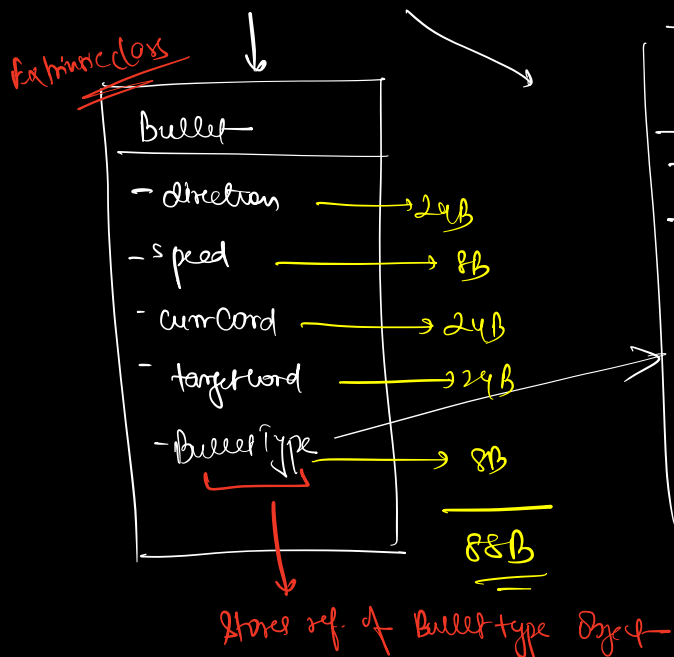 Extrinsic class
Bullet
- direction → 24B
- speed → 8B
- currCord → 24B
- targetCord → 24B
- BulletType → 8B
88B
Stores ref. of Bullet type Object